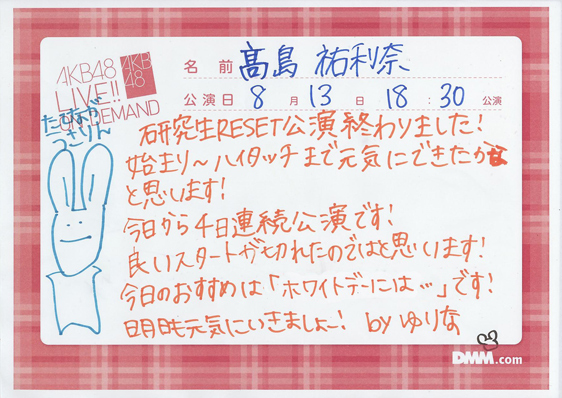 AKB48
LIVE!!
ON DEMAND
AKB
48
名前 髙島 祐利奈
公演日 8月13日 18:30公演
たかしまが
うさりん
研究生RESET公演終わりました!
始まり〜ハイタッチまで元気にできたかな
と思います!
今日から4日連続公演です!
良いスタートが切れたのではと思います!
今日のおすすめは「ホワイトデーには…」です!
明日も元気にいきましょー! by ゆりな
DMM.com